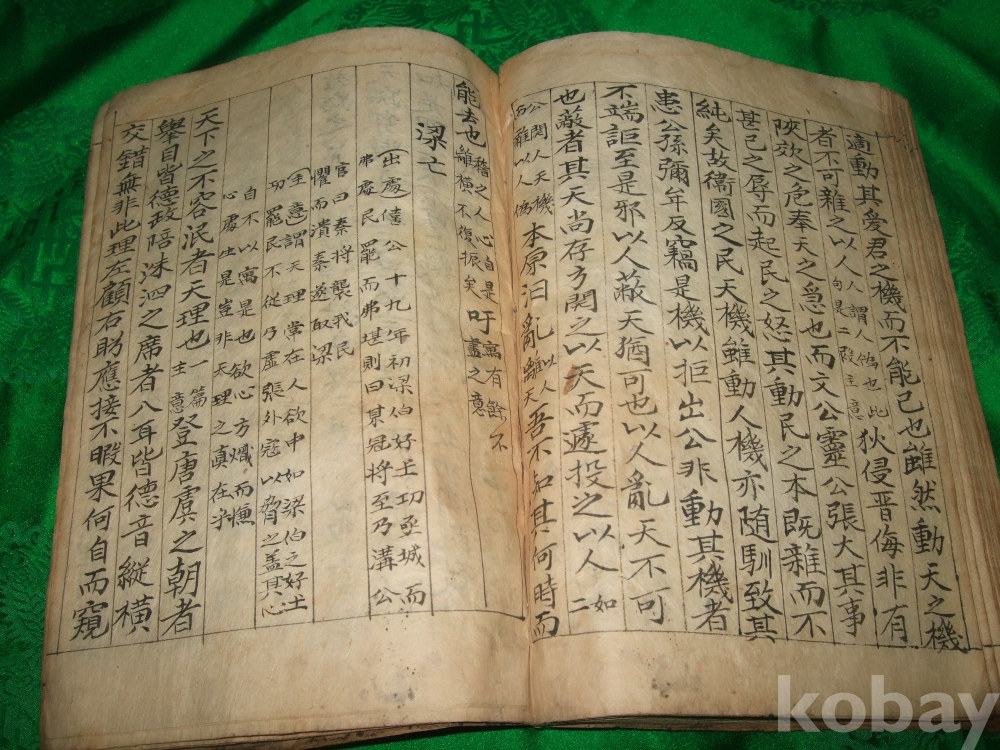 適動其愛君之機而不能已也雖然動天之機
者不可雜之以人人謂人偽也此句是二段主意狄侵晉侮非有
陜效之危奉天之急也而文公靈公張大其事
甚己之辱而起民之怒其動民之本既雜而不
純矣故衞國之民天機雖動人機亦随馴致其
患公孫彌牟反竊是機以拒出公非動其機者
不端詎至是邪以人蔽天猶可也以人亂天不可
也蔽者其天尚存方開之以天而遽投之以人如二
公開人天機而雜以人偽本原汩亂以人雜天吾不知其何時而
能去也稽之人心自是寓有餘不離橫不復振矣吁盡之意
梁亡
出處僖公十九年初梁伯好土功亟城而
弗處民罷而弗堪則曰某冦將至乃溝公
宮曰秦将襲我民
懼而潰秦遂取梁
主意謂天理常在人欲中如梁伯之好土
功罷民不從乃虛張外冦以脅之盖其心
自不以寓是也欲心方熾而慊
心處生是豈非天理之真在乎
天下之不容泯者天理也一篇主意登唐虞之朝者
舉目皆德政陪洙泗之席者入耳皆德音縱橫
交錯無非此理左顧右盻應接不暇果何自而窺
kobay